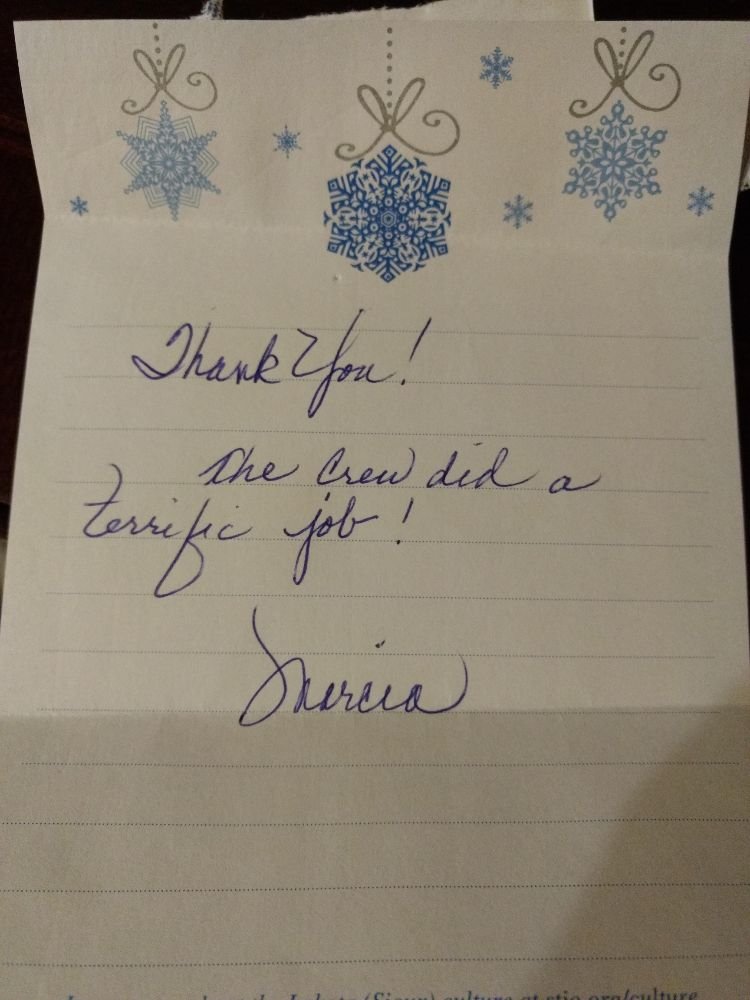 Thank You!
The Crew did a
terrific job!
Marcia
the Lakota (Sioux) culture at stjo.org/culture